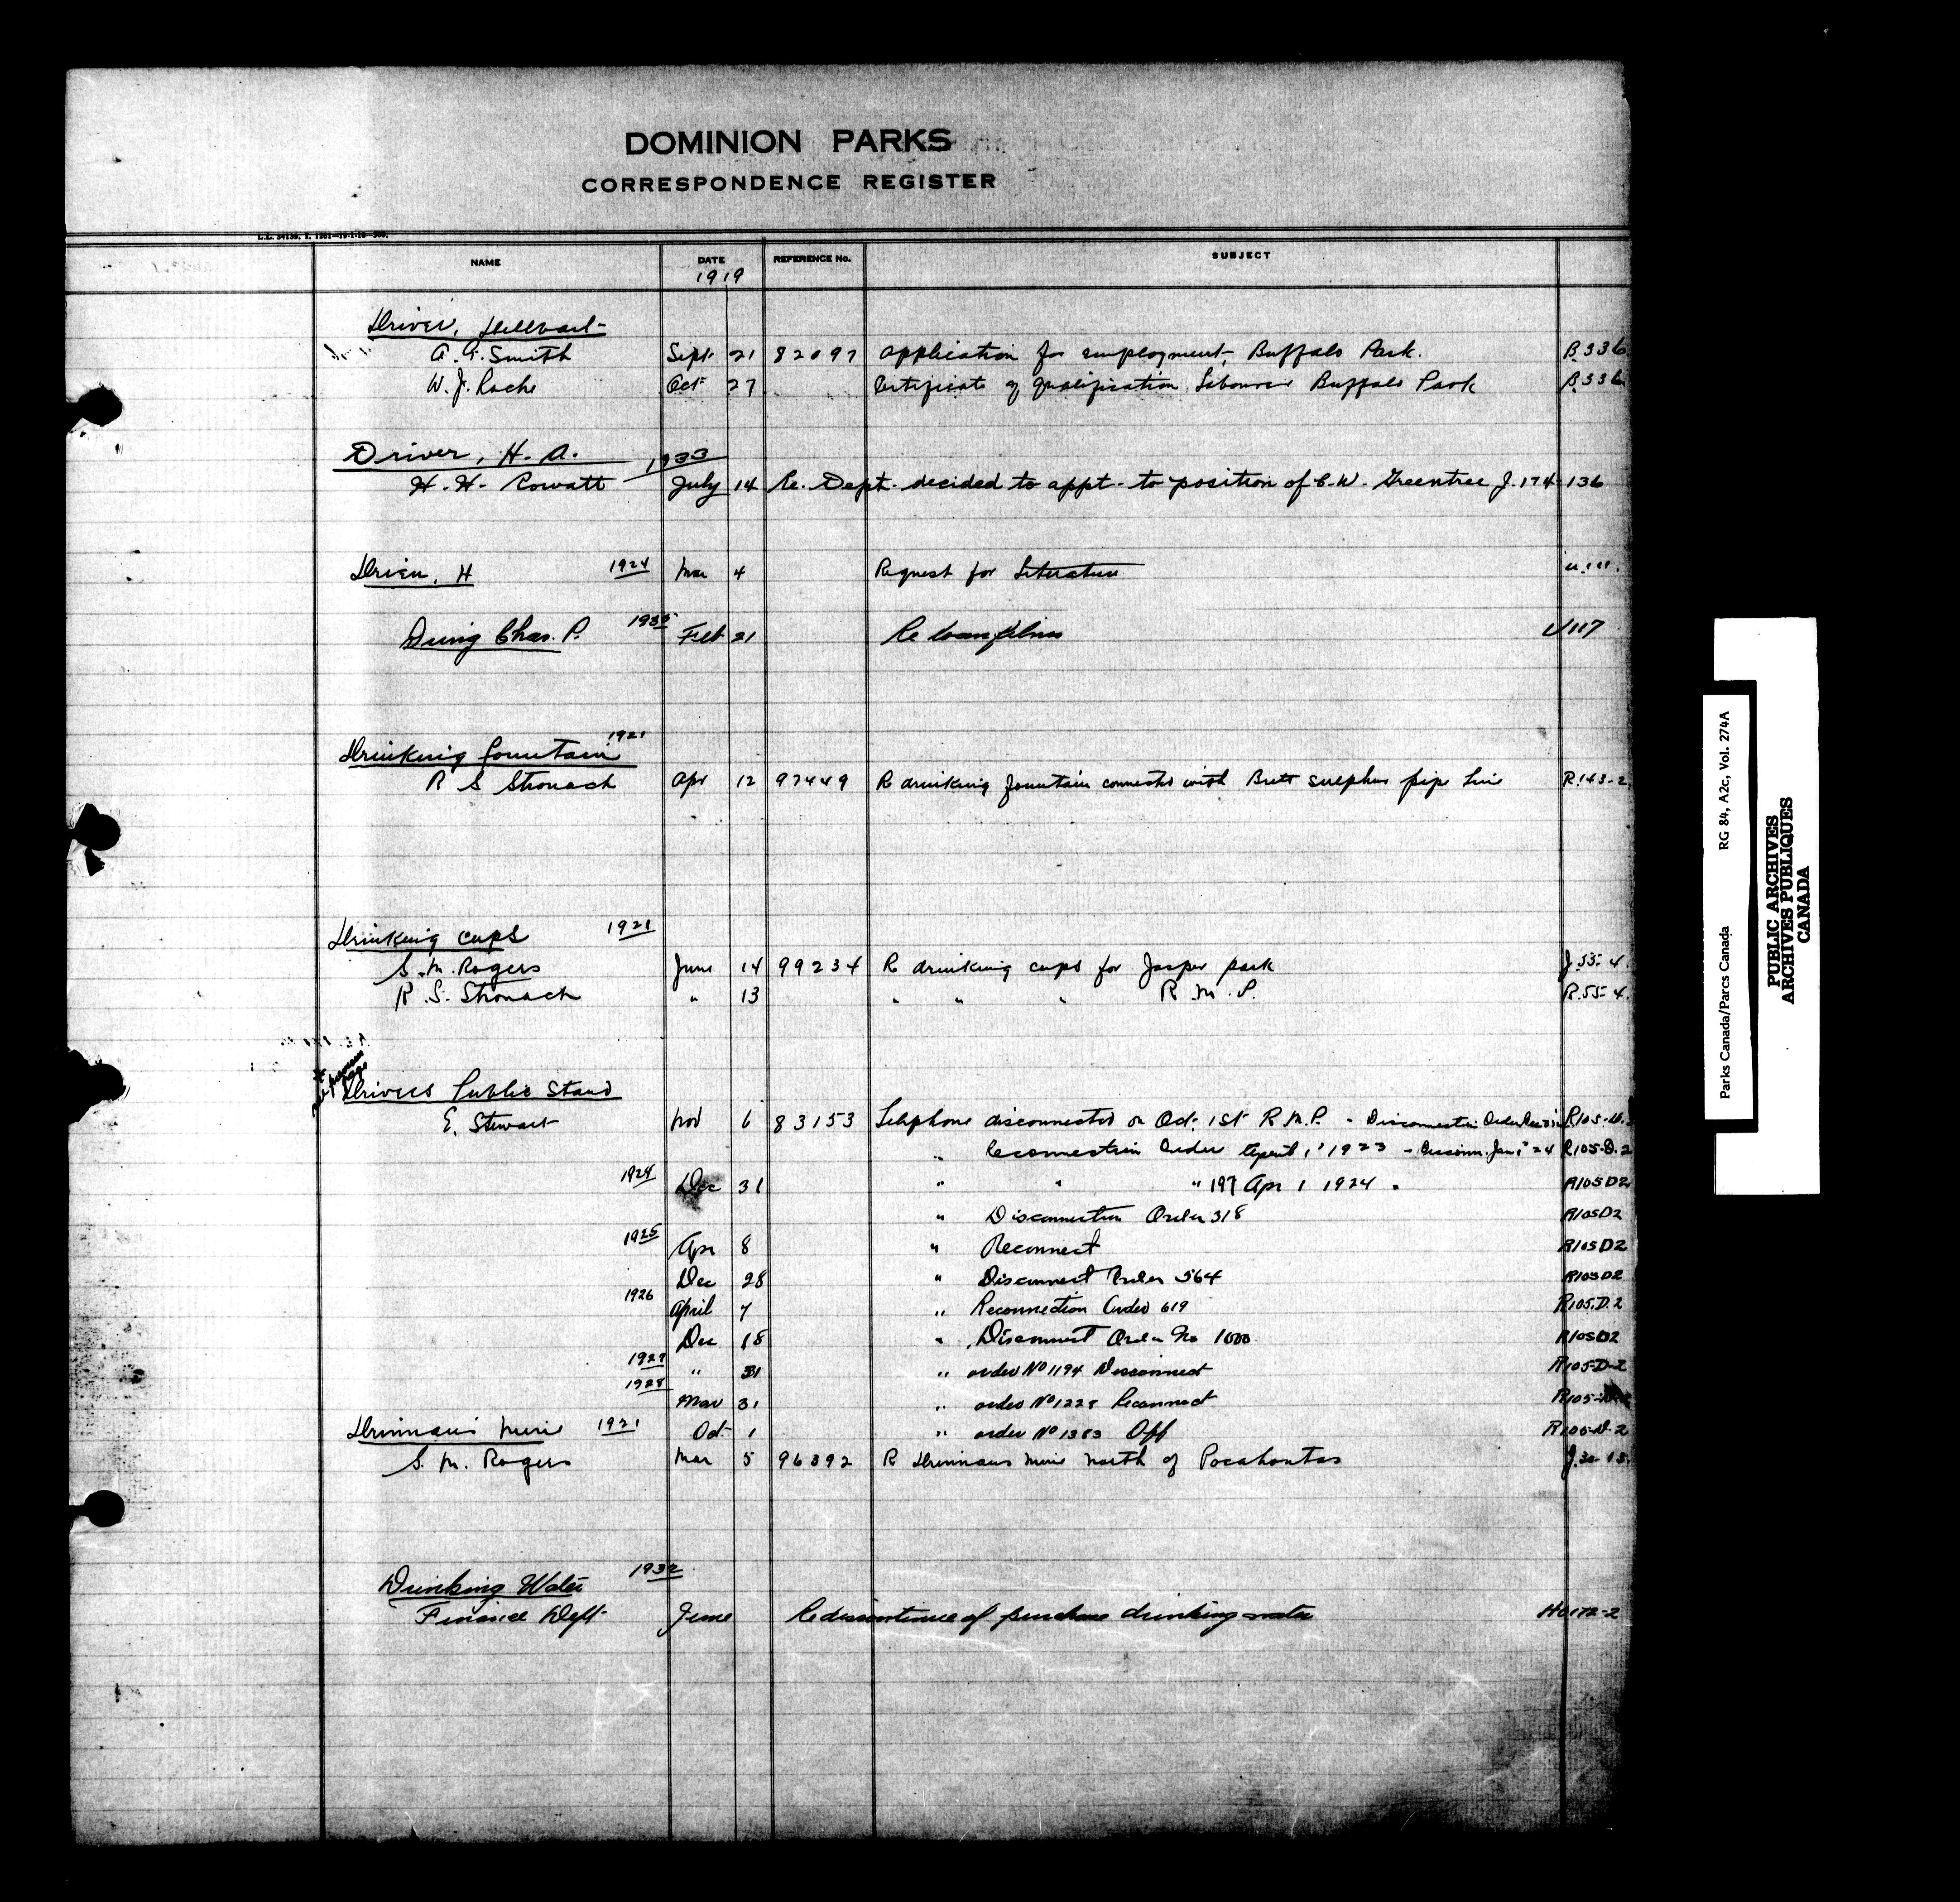 DOMINION PARKS
CORRESPONDENCE REGISTER
NAME DATE REFERENCE No. SUBJECT
1919
Driver,
A. G. Smith Sept. 21 82097 Application for employment, Buffalo Park. B.336
W. J. Roche Oct 27 Certificate of qualification Labourer Buffalo Park B.336
Driver, H. A. 1933
H. H. Rowatt July 14 Re. Dept. decided to appt. to position of C. W. Greentree J.174-136
H 1924 Mar 4 Request for Literature U.111.
Chas. P. Feb 21 Re loan films U117
Drinking fountain 1921
R S Stronach Apr 12 97449 R drinking fountain connected with Brett sulphur pipe line R.143-2
Drinking cups 1921
S. M. Rogers June 14 99234 R drinking cups for Jasper park J.55-4.
R. S. Stronach " 13 " " " R. M. P. R.55-4.
Drivers Public Stand
E. Stewart Nov 6 83153 Telephone disconnected on Oct. 1st R.M.P. - Disconnection Order
" Reconnection Order April 1, 1923 - Disconn. Jan 1 24 R105-D.2
1924 Dec 31 " " " 197 Apr 1 1924 R105D2
" Disconnection Order 318 R105D2
1925 Apr 8 " Reconnect R105D2
Dec 28 " Disconnect Order 564 R105D2
1926 April 7 " Reconnection Order 619 R105.D.2
Dec 18 " Disconnect Order No 1000 R105D2
1927 " 31 " order No 1194 Disconnect R105-D-2
1928 Mar 31 " order No 1228 Reconnect
Oct 1 " order No 1383 Off R105-D-2
Drinnans Mine 1921
S. M. Rogers Mar 5 96392 R Drinnans mine north of Pocahontas
Drinking Water 1932
Finance Dept. June Re discontinue of purchase drinking water
Parks Canada/Parcs Canada RG 84, A2c, Vol. 274A
PUBLIC ARCHIVES
ARCHIVES PUBLIQUES
CANADA